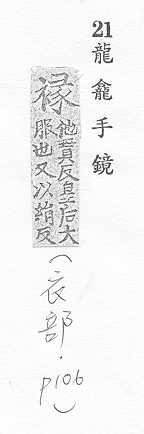 21 龍龕手鏡
褖
他貫反皇后大
服也又以絹反
(衣部・p106)